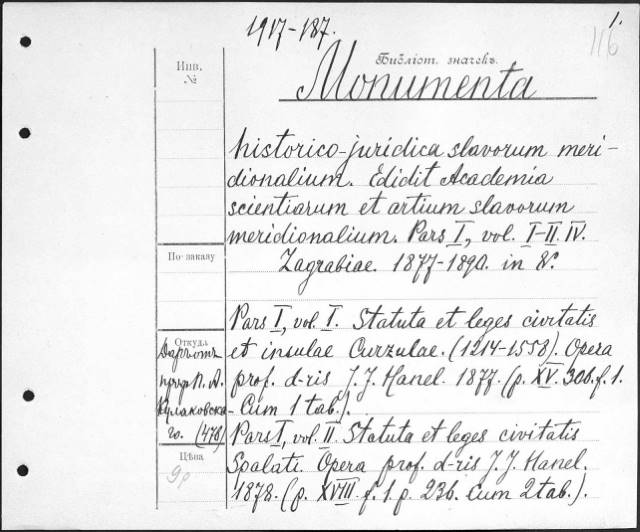 1917-187.
1.
116
Инв.
№
Библіот. значекъ.
Monumenta
historico-juridica slavorum meri-
dionalium. Edidit Academia
scientiarum et artium slavorum
meridionalium. Pars I, vol. I-II. IV.
Zagrabiae. 1877-1890. in 8°.
По заказу
Pars I, vol. I. Statuta et leges civitatis
et insulae Curzulae. (1214-1558). Opera
prof. d-ris J. J. Hanel. 1877. (p. XV. 306. f. 1.
Cum 1 tab.).
Откуда
Даръ отъ
проф. П. А.
Кулаковска-
го. (478)
Pars I, vol. II. Statuta et leges civitatis
Spalati. Opera prof. d-ris J. J. Hanel.
1878. (p. XVIII. f. 1. p. 236. Cum 2 tab.).
Цѣна
9р